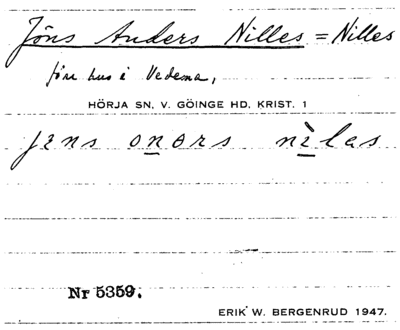 Jöns Anders Nilles = Nilles
förr hus i Vedema,
HÖRJA SN. V. GÖINGE HD. KRIST. 1
jens onors nìlas
Nr 5359.
ERIK W. BERGENRUD 1947.